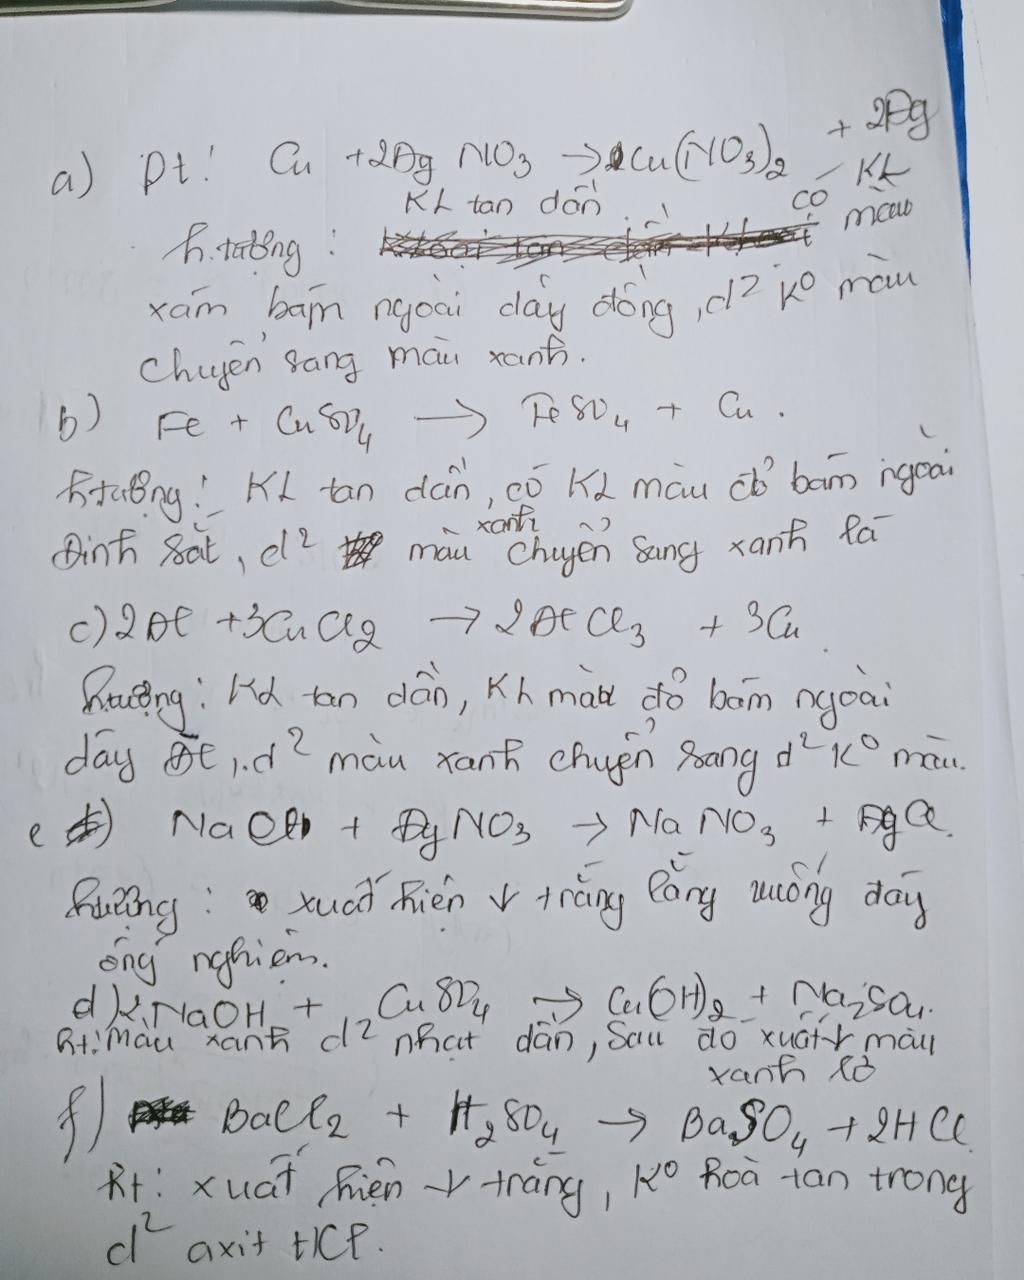 a) Pt: Cu + 2Ag NO3 → Cu(NO3)2 + 2Ag
KL tan dần, có KL màu
h.tượng:
xám bám ngoài dây đồng, d² k⁰ màu
chuyển sang màu xanh.
b) Fe + CuSO4 → FeSO4 + Cu.
h.tượng: KL tan dần, có KL màu đỏ bám ngoài
Đinh sắt, d² màu xanh chuyển sang xanh lá
c) 2Al + 3CuCl2 → 2AlCl3 + 3Cu
h.tượng: KL tan dần, KL màu đỏ bám ngoài
dây Al, d² màu xanh chuyển sang d² k⁰ màu.
e) NaCl + AgNO3 → NaNO3 + AgCl.
h.tượng: xuất hiện ↓ trắng lắng xuống đáy
ống nghiệm.
d) 2NaOH + CuSO4 → Cu(OH)2 + Na2SO4.
ht: Màu xanh d² nhạt dần, Sau đó xuất ↓ màu
xanh lơ
f) BaCl2 + H2SO4 → BaSO4 + 2HCl
ht: xuất hiện ↓ trắng, k⁰ hoà tan trong
d² axit HCl.